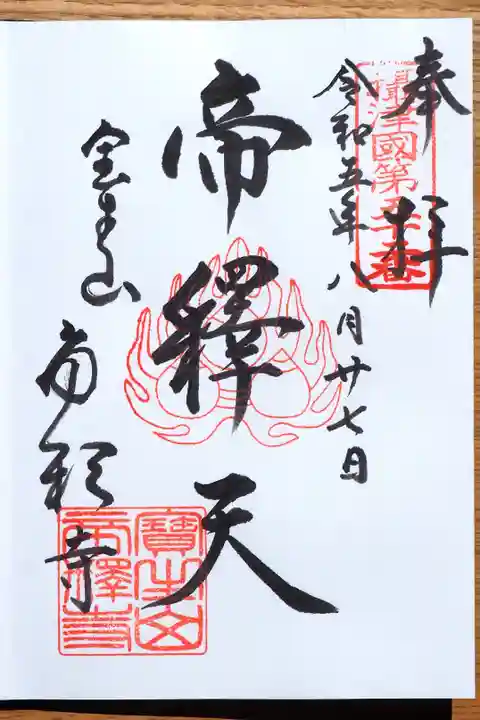 奉拝
攝津國第
令和五年八月廿七日
帝釋天
宝生山 帝釈寺
寶生山
帝釋寺